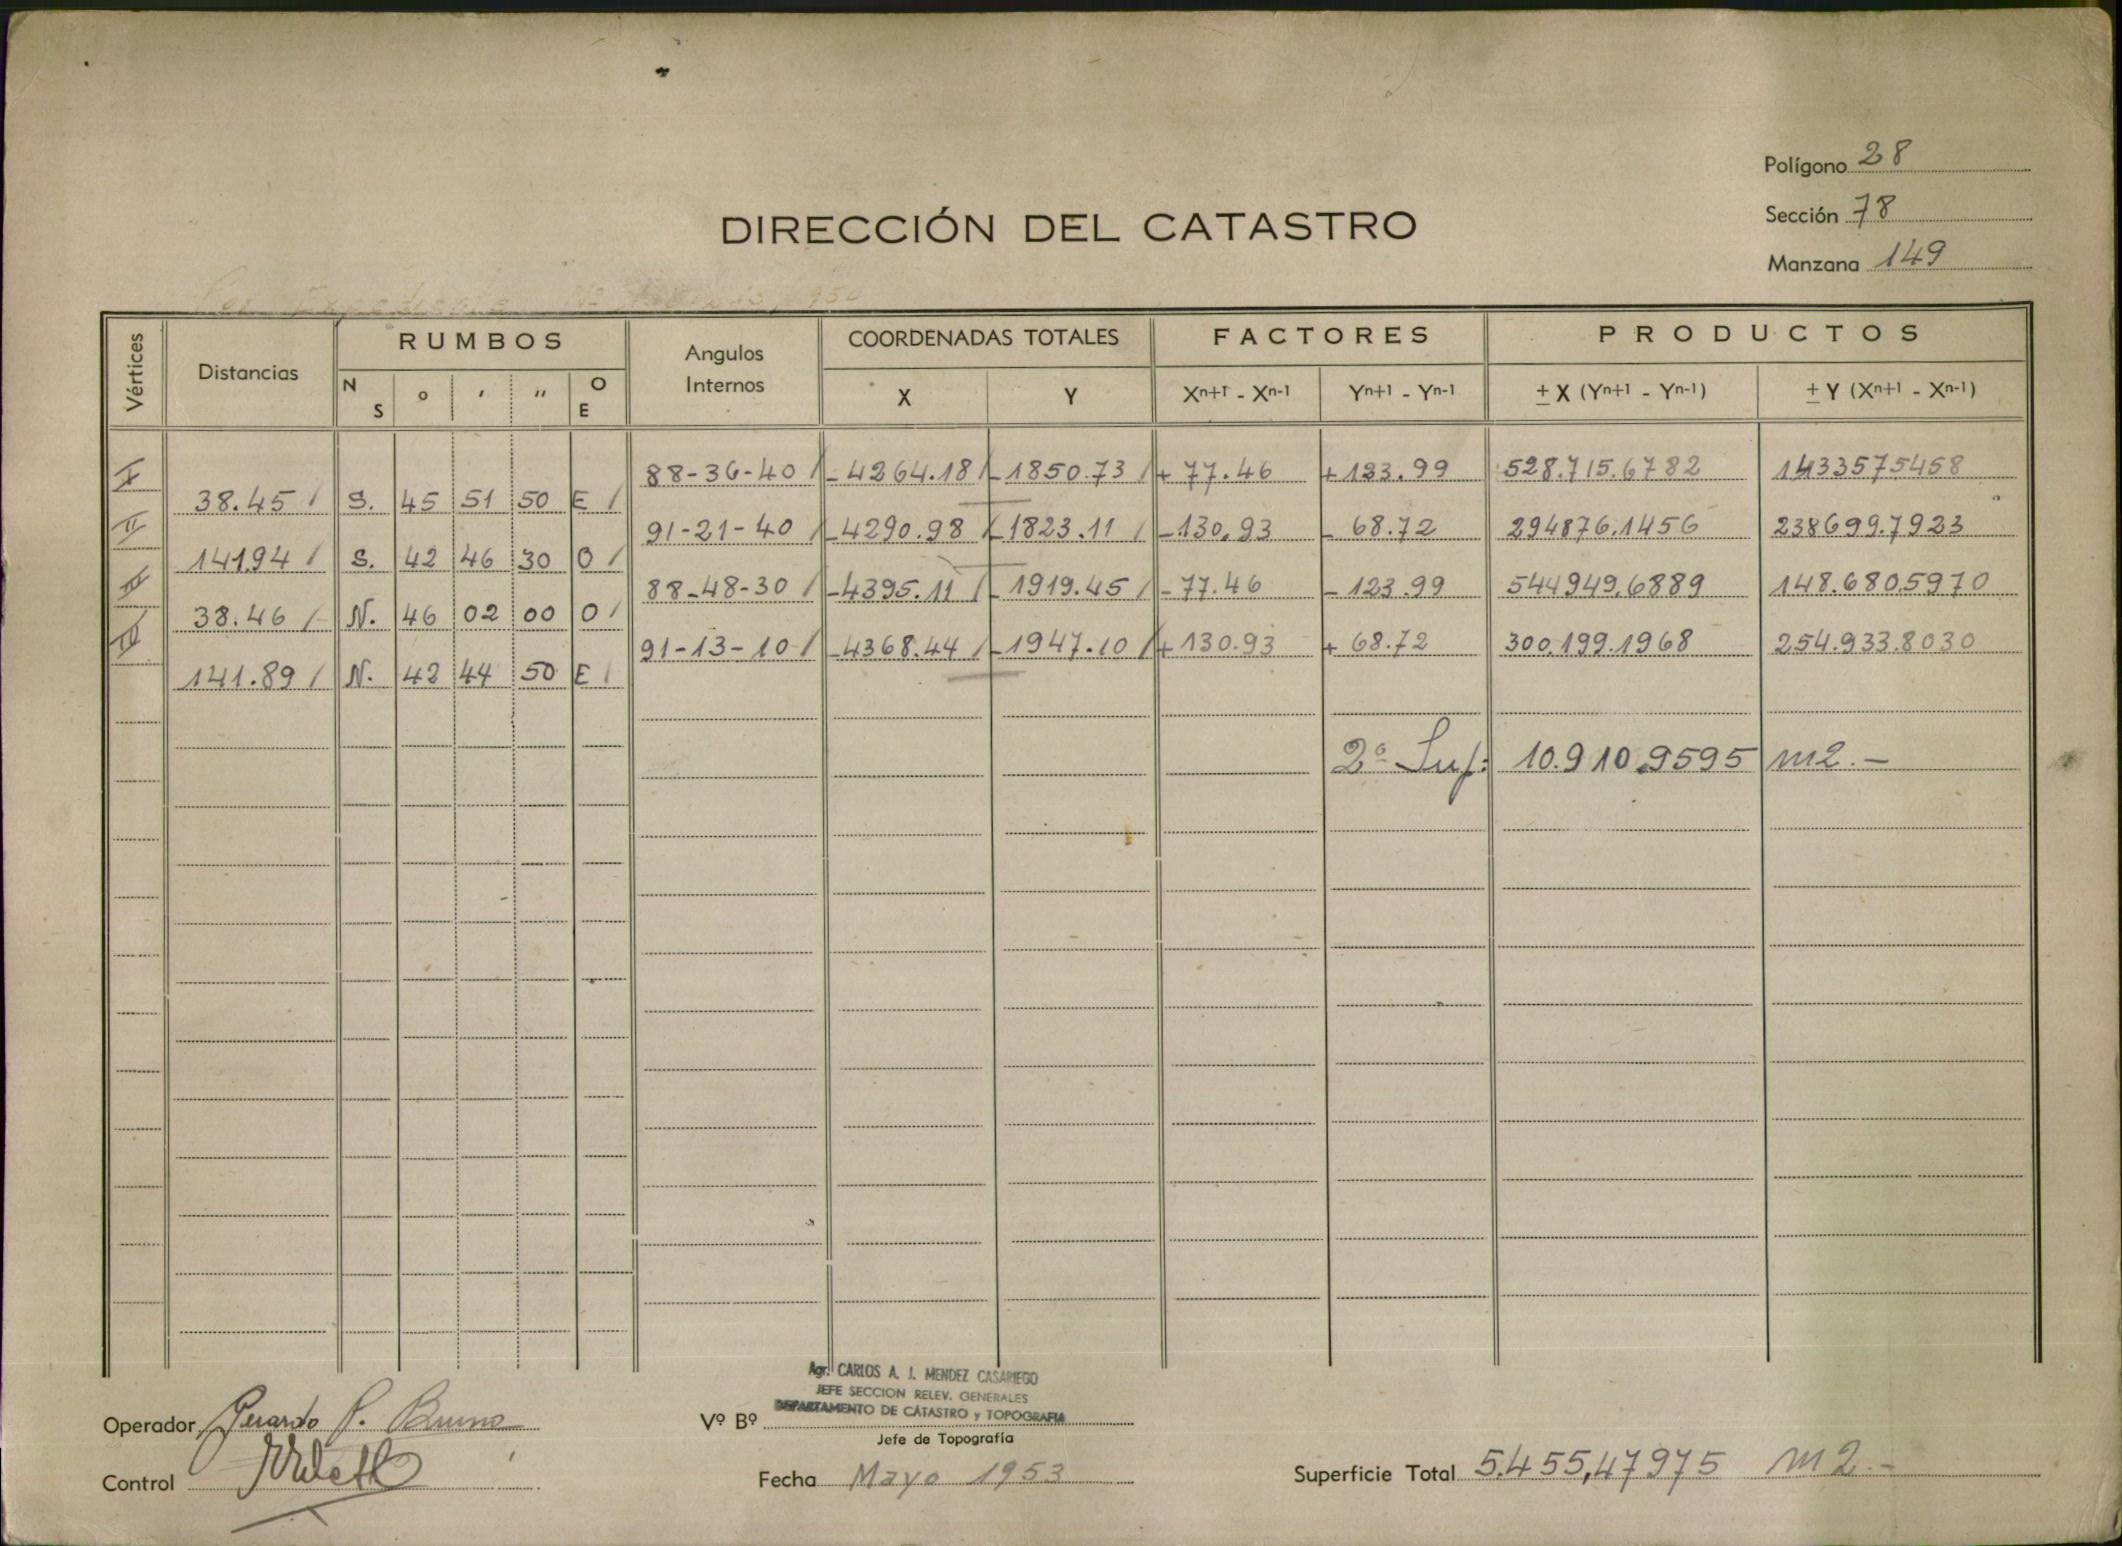 Polígono 28
Sección 78
DIRECCIÓN DEL CATASTRO
Manzana 149
Vértices Distancias RUMBOS Angulos Internos COORDENADAS TOTALES FACTORES PRODUCTOS
N S o ' " O E X Y Xn+1 - Xn-1 Yn+1 - Yn-1 ± X (Yn+1 - Yn-1) ± Y (Xn+1 - Xn-1)
I 88-36-40 / -4264.18 / -1850.73 / + 77.46 +123.99 528.715.6782 143357.5458
38.45 / S. 45 51 50 E /
II 91-21-40 / -4290.98 / -1823.11 / -130.93 - 68.72 294876.1456 238699.7923
141.94 / S. 42 46 30 O /
III 88-48-30 / -4395.11 / - 1919.45 / - 77.46 - 123.99 544949.6889 148.680.5970
38.46 / N. 46 02 00 O /
IV 91-13-10 / -4368.44 / -1947.10 / + 130.93 + 68.72 300.199.1968 254.933.8030
141.89 / N. 42 44 50 E /
2ª Sup: 10.910.9595 m2.-
Agr. CARLOS A. J. MENDEZ CASARIEGO
JEFE SECCION RELEV. GENERALES
DEPARTAMENTO DE CATASTRO y TOPOGRAFIA
Operador Gerardo P. Bruno Vº Bº
Jefe de Topografía
Control Fecha Mayo 1953 Superficie Total 5.455,47975 m2.-